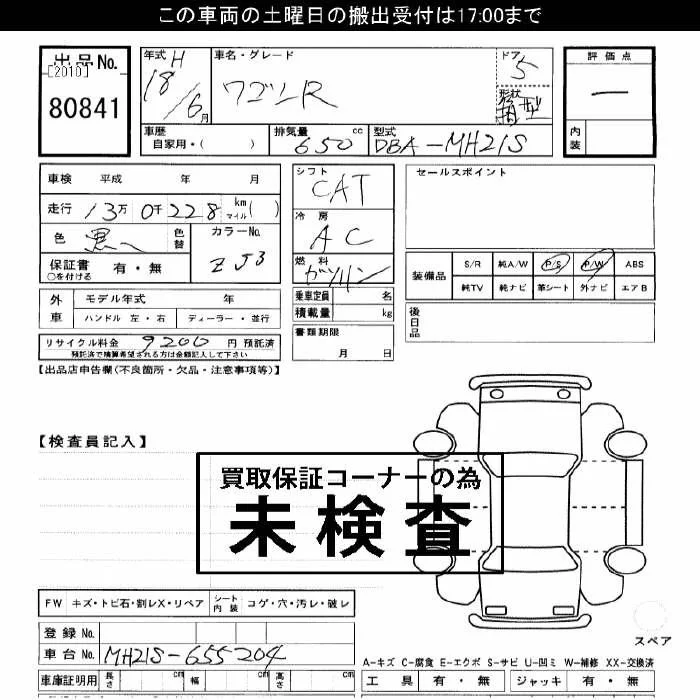 この車両の土曜日の搬出受付は17:00まで
出品No.
[2010]
80841
年式 H
18/6月
車名・グレード
ワゴンR
ドア
5
形状
箱型
評価点
ー
内装
車歴
自家用・( )
排気量
650 cc
型式
DBA-MH21S
車検 平成 年 月
走行 13万0千228 km マイル( )
色 黒へ 色替
カラーNo.
ZJ3
保証書 有・無
○を付ける
外車
モデル年式 年
ハンドル 左・右 ディーラー・並行
リサイクル料金 9200 円 預託済
預託済で精算希望される方は金額記入して下さい
シフト
CAT
冷房
AC
燃料
ガソリン
乗車定員 名
積載量 kg
書類期限
月 日
セールスポイント
装備品
S/R 純A/W P/S P/W ABS
純TV 純ナビ 革シート 外ナビ エアB
後日品
【出品店申告欄(不良箇所・欠品・注意事項等)】
【検査員記入】
買取保証コーナーの為
未検査
FW キズ・トビ石・割レX・リペア シート内装 コゲ・穴・汚レ・破レ
登録No.
車台No. MH21S-655204
車庫証明用 長さ cm 幅 cm 高さ cm
スペア
A-キズ C-腐食 E-エクボ S-サビ U-凹ミ W-補修 XX-交換済
工具 有・無 ジャッキ 有・無